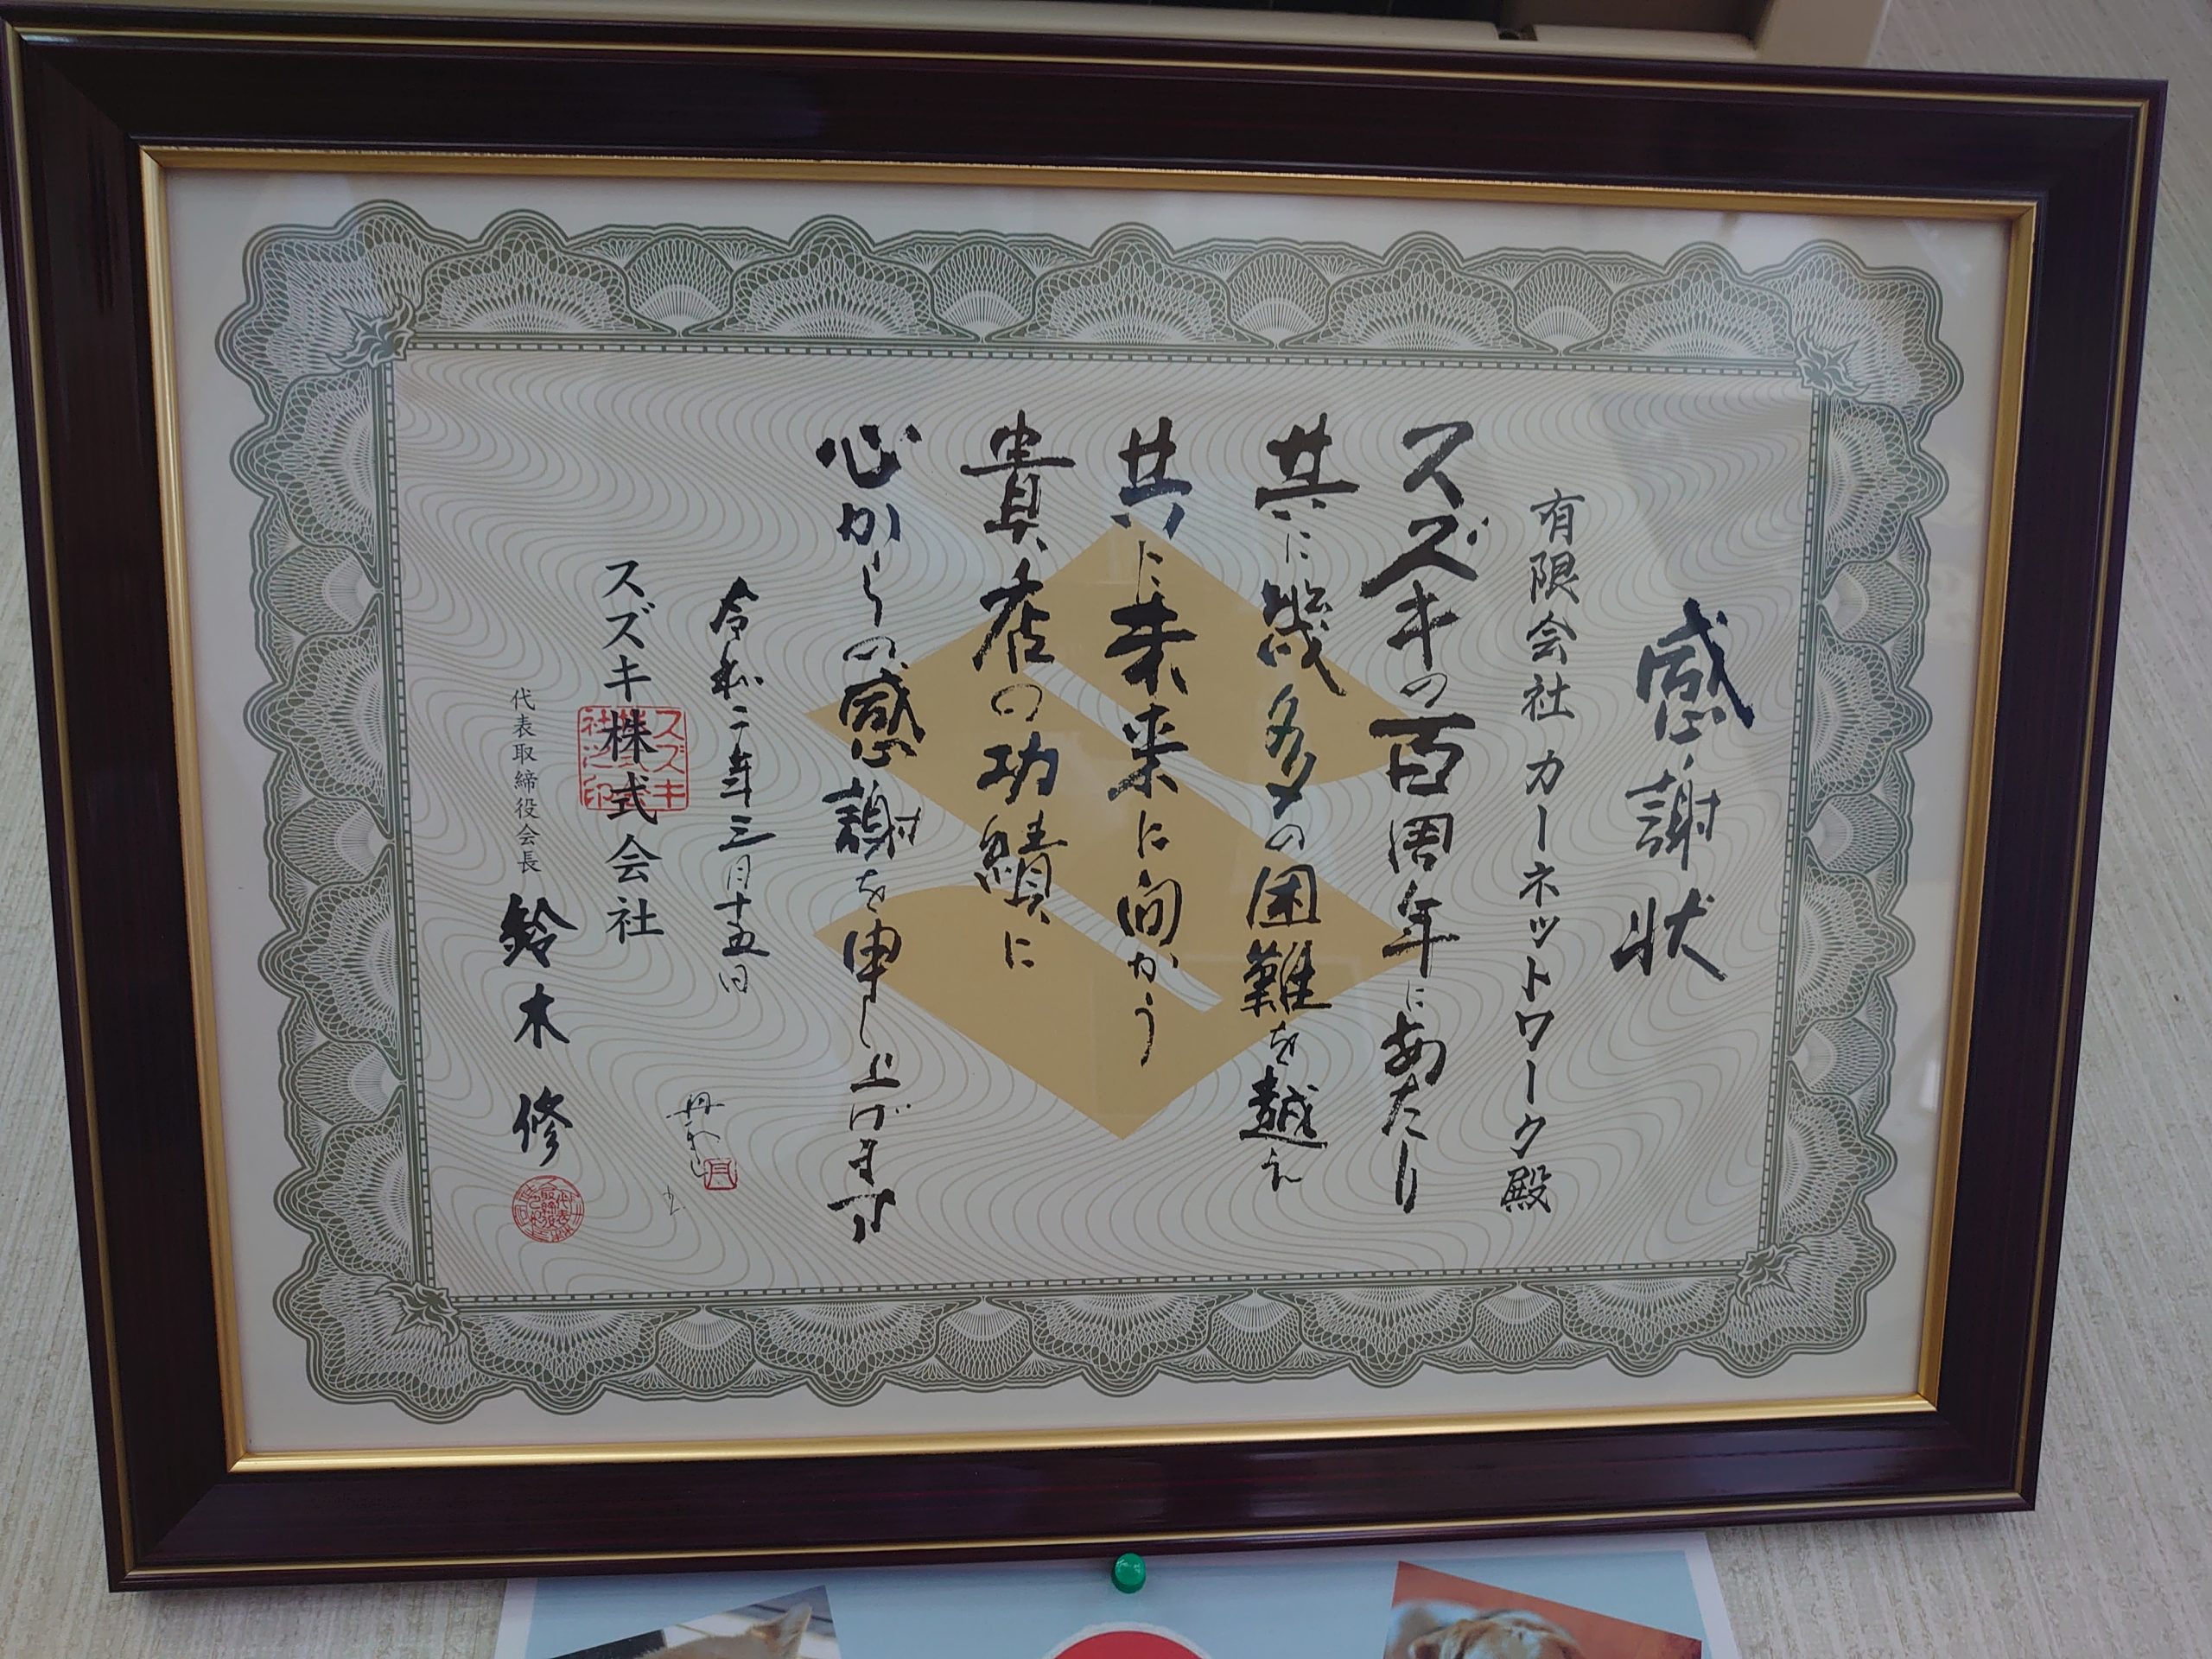 感謝状
有限会社 カーネットワーク殿
スズキの百周年にあたり
共に幾多の困難を越え
共に未来に向かう
貴店の功績に
心からの感謝を申し上げます
令和二年三月十五日
スズキ株式会社
代表取締役会長 鈴木 修